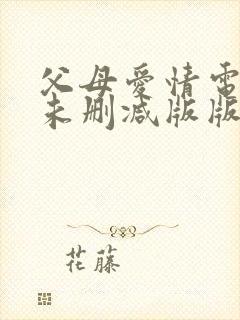 父母爱情電
未删减版版
花藤